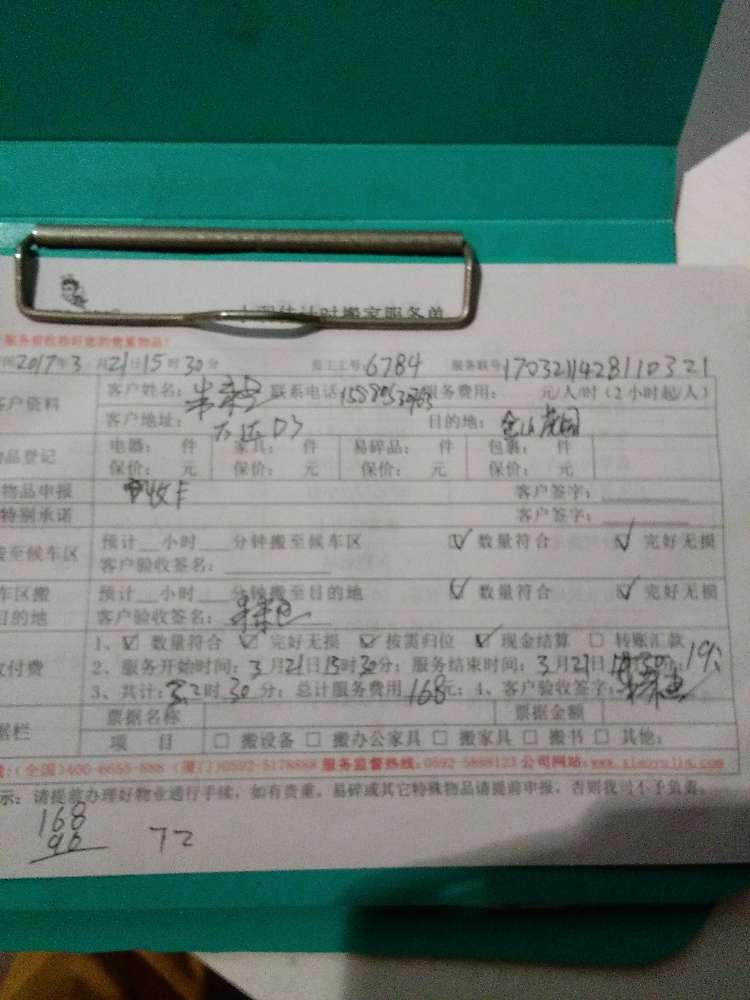 计时搬家服务单
服务前收拾好您的贵重物品!
2017年3月21日15时30分 员工工号:6784 服务联号1703211428110321
客户资料 客户姓名: 联系电话 服务费用: 元/人/时(2小时起/人)
客户地址: 目的地: 金山花园
品登记 电器: 件 家具: 件 易碎品: 件 包裹: 件
保价: 元 保价: 元 保价: 元 保价: 元
物品申报 客户签字:
特别承诺 客户签字:
搬至候车区 预计__小时__分钟搬至候车区 ☑ 数量符合 ☑ 完好无损
客户验收签名:
车区搬 预计__小时__分钟搬至目的地 ☑ 数量符合 ☑ 完好无损
目的地 客户验收签名:
付费 1、☑ 数量符合 ☑ 完好无损 ☑ 按需归位 ☑ 现金结算 □ 转账汇款
2、服务开始时间:3月21日15时30分; 服务结束时间:3月21日
3、共计: 时30分; 总计服务费用168元; 4、客户验收签字:
据栏 票据名称 票据金额
项 目 □ 搬设备 □ 搬办公家具 □ 搬家具 □ 搬书 □ 其他:
(全国)400-6655-888 (厦门)0592-5178888 服务监督热线:0592-5888123 公司网站:
示: 请提前办理好物业通行手续,如有贵重、易碎或其它特殊物品请提前申报,否则我司不予负责。
168
96 72